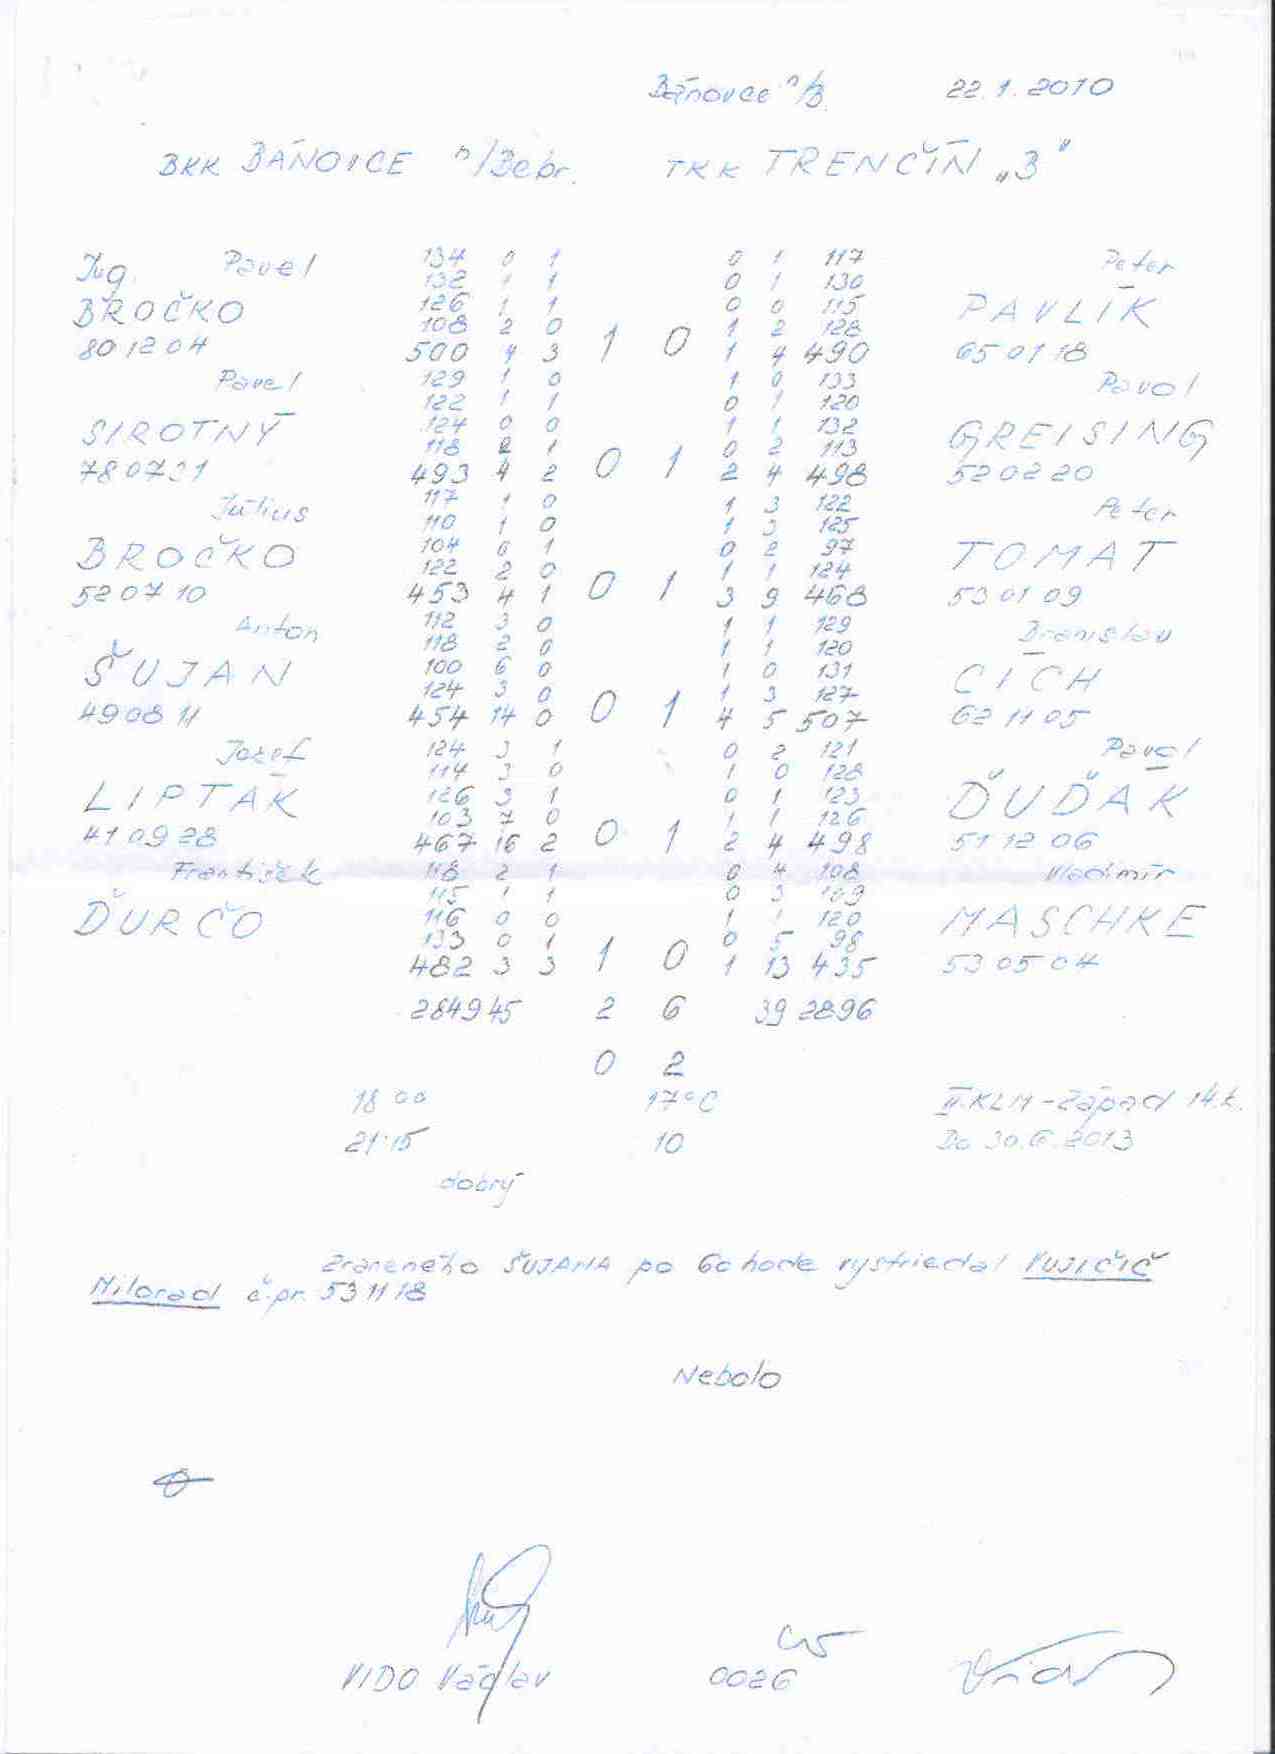 Bánovce n/B. 22.1.2010
BKK BÁNOVCE n/Bebr. TKK TRENČÍN „B"
Ing. Pavel 134 0 1 0 1 117 Peter
132 1 1 0 1 130
BROČKO 126 1 1 0 0 115 PAVLÍK
108 2 0 1 2 128
80 12 04 500 4 3 1 0 1 4 490 65 01 18
Pavel 129 1 0 1 0 133 Pavol
122 1 1 0 1 120
SIROTNÝ 124 0 0 1 1 132 GREISING
118 2 1 0 2 113
78 07 31 493 4 2 0 1 2 4 498 52 02 20
Július 117 1 0 1 3 122 Peter
110 1 0 1 3 125
BROČKO 104 0 1 0 2 97 TOMAT
122 2 0 1 1 124
52 07 10 453 4 1 0 1 3 9 468 53 01 09
Anton 112 3 0 1 1 129 Branislav
118 2 0 1 1 120
ŠUJAN 100 6 0 1 0 131 CÍCH
124 3 0 1 3 127
49 08 11 454 14 0 0 1 4 5 507 62 11 05
Jozef 124 3 1 0 2 121 Pavol
114 3 0 1 0 128
LIPTÁK 126 3 1 0 1 123 ĎUĎÁK
103 7 0 1 1 126
41 09 28 467 16 2 0 1 2 4 498 51 12 06
František 118 2 1 0 4 108 Vladimír
115 1 1 0 3 109
ĎURČO 116 0 0 1 1 120 MASCHKE
133 0 1 0 5 98
482 3 3 1 0 1 13 435 53 05 04
2849 45 2 6 39 2896
0 2
18 00 17°C II.KLM-Západ 14.k.
21:15 10 Do 30.6.2013
dobrý
Zraneného ŠUJANA po 60 hode vystriedal VUJIČIČ
Milorad č.pr. 53 11 18
Nebolo
VIDO Václav 0026